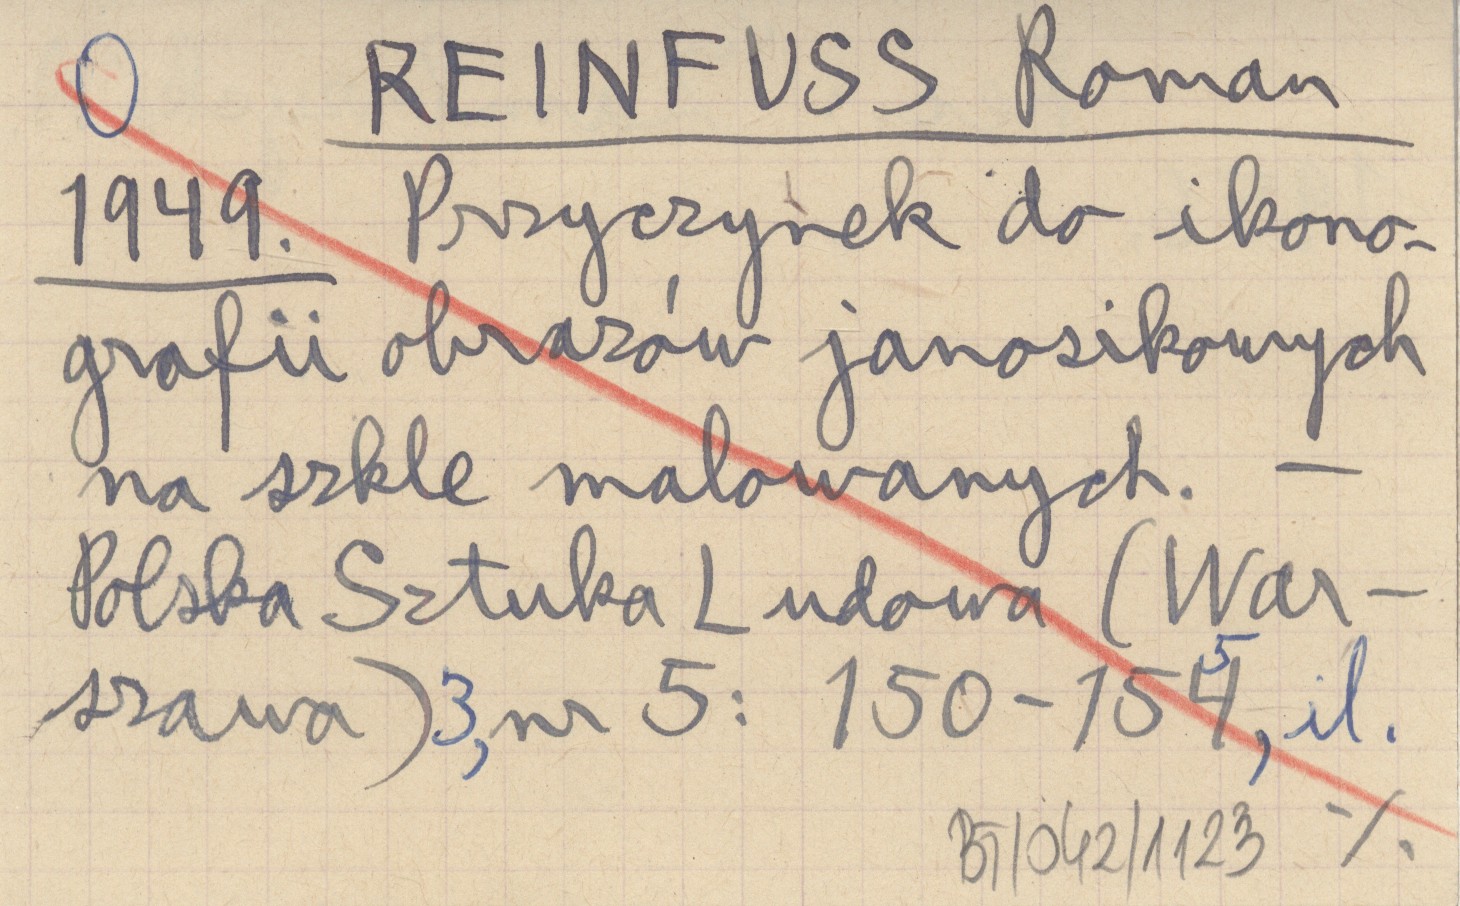 O REINFUSS Roman
1949. Przyczynek do ikono-
grafii obrazów janosikowych
na szkle malowanych. —
Polska Sztuka Ludowa (War-
szawa) 3, nr 5: 150-1545, il.
BT/042/1123 -/.